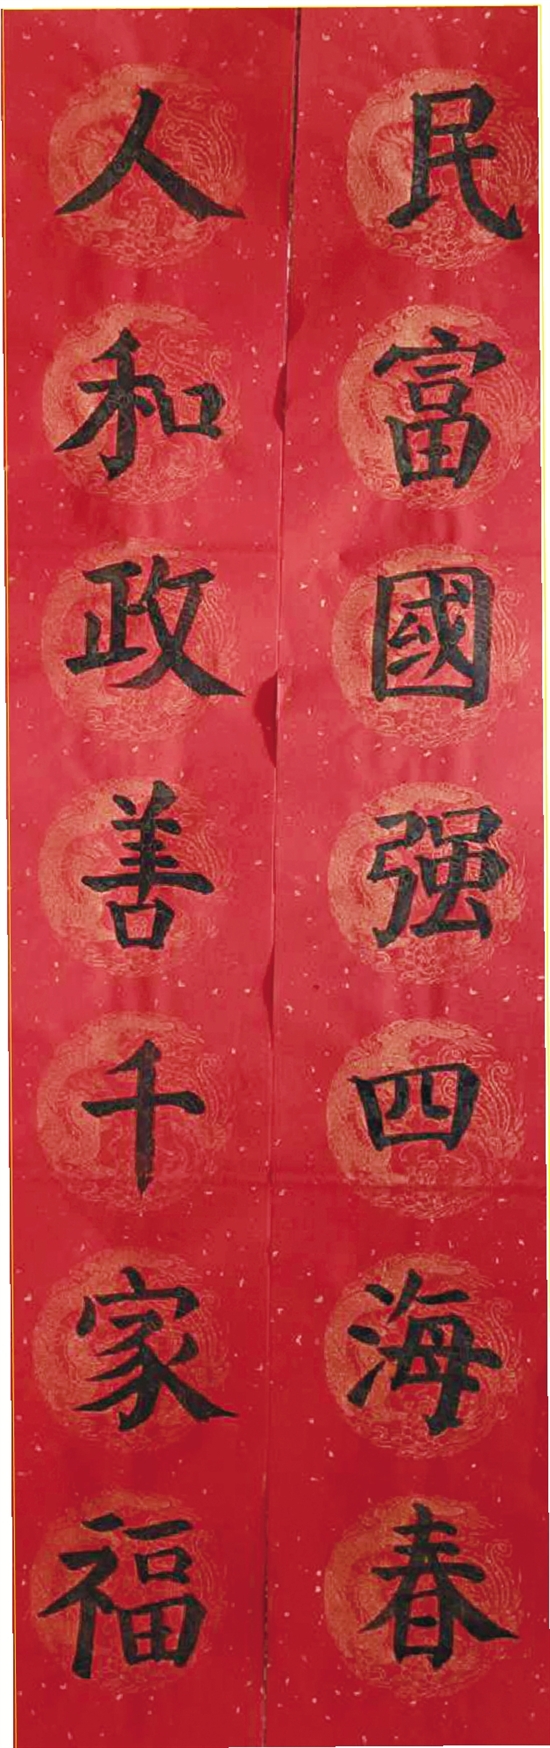 民富國强四海春
人和政善千家福